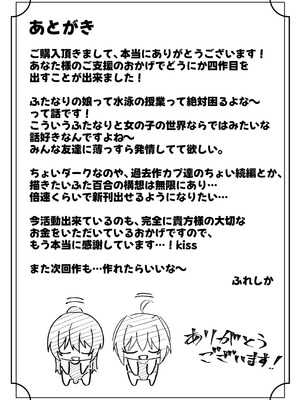 あとがき
ご購入頂きまして、本当にありがとうございます！
あなた様のご支援のおかげでどうにか四作目を
出すことが出来ました！
ふたなりの娘って水泳の授業って絶対困るよな～
って話です！
こういうふたなりと女の子の世界ならではみたいな
話好きなんですよね～
みんな友達に薄っすら発情してて欲しい。
ちょいダークなのや、過去作カプ達のちょい続編とか、
描きたいふた百合の構想は無限にあり…
倍速くらいで新刊出せるようになりたい…
今活動出来ているのも、完全に貴方様の大切な
お金をいただいているおかげですので、
もう本当に感謝しています…！kiss
また次回作も…作れたらいいな～
ふれしか
ありがとう
ございます!!